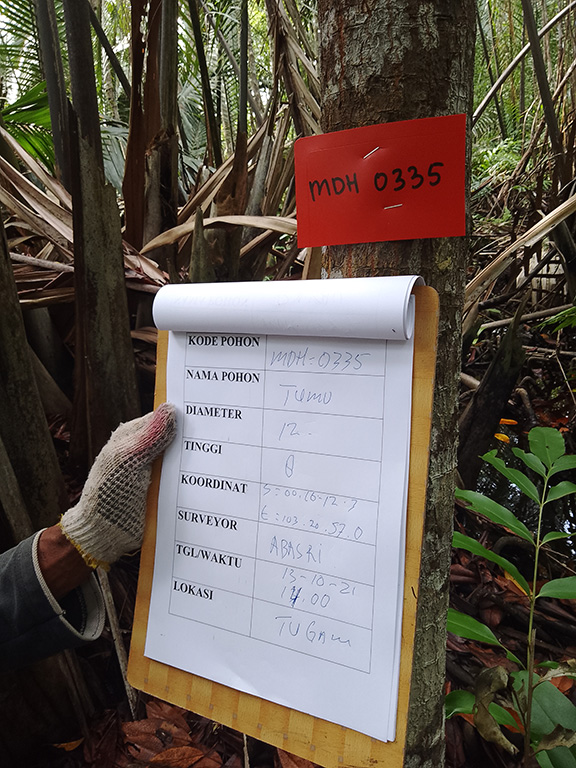 MDH 0335
KODE POHON MDH-0335
NAMA POHON TUMU
DIAMETER 12.
TINGGI 8
KOORDINAT S=00.16-12.3
E=103.20.57.0
SURVEYOR ABASRI
TGL/WAKTU 13-10-21
14.00
LOKASI